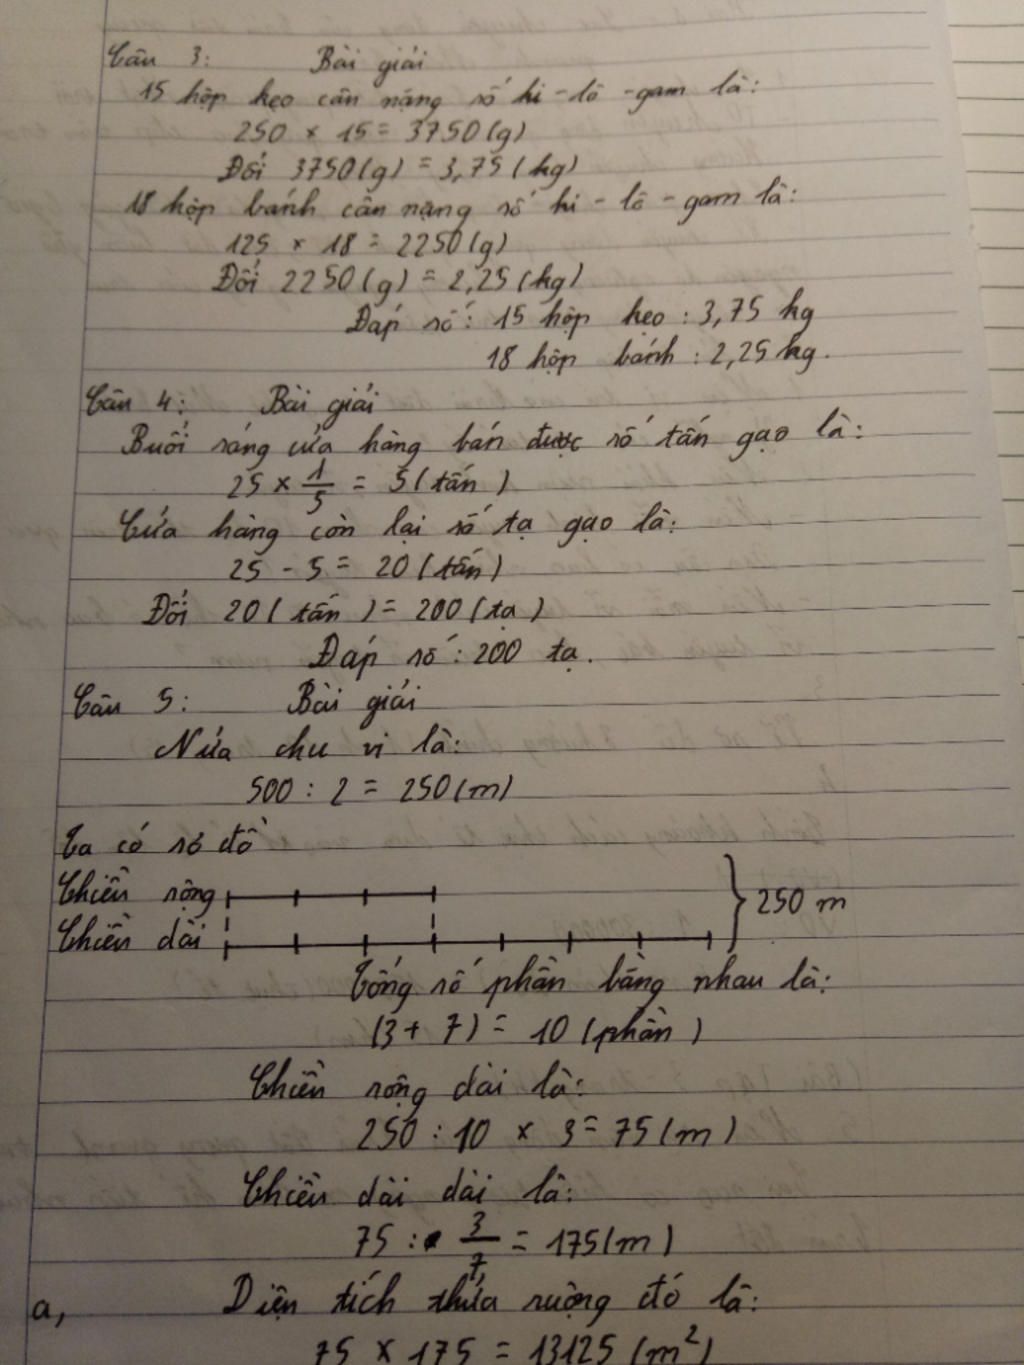 Câu 3: Bài giải
15 hộp kẹo cân nặng số ki-lô-gam là:
250 × 15 = 3750 (g)
Đổi 3750 (g) = 3,75 (kg)
18 hộp bánh cân nặng số ki-lô-gam là:
125 × 18 = 2250 (g)
Đổi 2250 (g) = 2,25 (kg)
Đáp số: 15 hộp kẹo : 3,75 kg
18 hộp bánh : 2,25 kg.
Câu 4: Bài giải
Buổi sáng cửa hàng bán được số tấn gạo là:
25 × 1/5 = 5 (tấn)
Cửa hàng còn lại số tạ gạo là:
25 - 5 = 20 (tấn)
Đổi 20 (tấn) = 200 (tạ)
Đáp số: 200 tạ.
Câu 5: Bài giải
Nửa chu vi là:
500 : 2 = 250 (m)
Ta có sơ đồ
Chiều rộng
250 m
Chiều dài
Tổng số phần bằng nhau là:
(3 + 7) = 10 (phần)
Chiều rộng dài là:
250 : 10 × 3 = 75 (m)
Chiều dài dài là:
75 : 3/7 = 175 (m)
a, Diện tích thửa ruộng đó là:
75 × 175 = 13125 (m²)